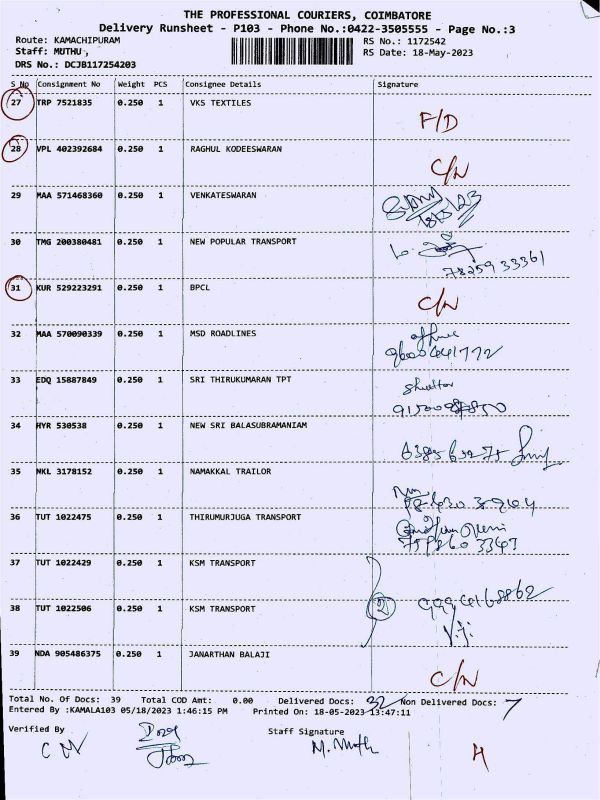 THE PROFESSIONAL COURIERS, COIMBATORE
Delivery Runsheet - P103 - Phone No.:0422-3505555 - Page No.:3
Route: KAMACHIPURAM RS No.: 1172542
Staff: MUTHU , RS Date: 18-May-2023
DRS No.: DCJB117254203
S No Consignment No Weight PCS Consignee Details Signature
27 TRP 7521835 0.250 1 VKS TEXTILES F/D
28 VPL 402392684 0.250 1 RAGHUL KODEESWARAN C/N
29 MAA 571468360 0.250 1 VENKATESWARAN
30 TMG 200380481 0.250 1 NEW POPULAR TRANSPORT 7825933361
31 KUR 529223291 0.250 1 BPCL C/N
32 MAA 570090339 0.250 1 MSD ROADLINES 9600641772
33 EDQ 15887849 0.250 1 SRI THIRUKUMARAN TPT
34 HYR 530538 0.250 1 NEW SRI BALASUBRAMANIAM
35 NKL 3178152 0.250 1 NAMAKKAL TRAILOR
36 TUT 1022475 0.250 1 THIRUMURJUGA TRANSPORT
37 TUT 1022429 0.250 1 KSM TRANSPORT
38 TUT 1022506 0.250 1 KSM TRANSPORT 2 9994168862
39 NDA 905486375 0.250 1 JANARTHAN BALAJI C/N
Total No. Of Docs: 39 Total COD Amt: 0.00 Delivered Docs: 32 Non Delivered Docs: 7
Entered By :KAMALA103 05/18/2023 1:46:15 PM Printed On: 18-05-2023 13:47:11
Verified By Staff Signature
M. Muth